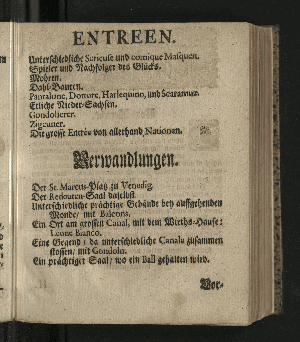 ENTREEN.
Unterschiedliche Serieuse und comique Masquen.
Spieler und Nachfolger des Glücks.
Mohren.
Dahl-Bauren.
Pantalone, Dottore, Harlequino, und Scaramuz.
Etliche Nieder-Sachsen.
Gondolierer.
Zigeuner.
Die grosse Entrée von allerhand Nationen.
Verwandlungen.
Der St. Marcus-Platz zu Venedig.
Der Redouten-Saal daselbst.
Unterschiedliche prächtige Gebäude bey auffgehenden
Monde/ mit Balcons.
Ein Ort am grossen Canal, mit dem Wirths-Hause:
Leone Bianco.
Eine Gegend/ da unterschiedliche Canals zusammen
stossen/ mit Gondoln.
Ein prächtiger Saal/ wo ein Ball gehalten wird.
Vor-